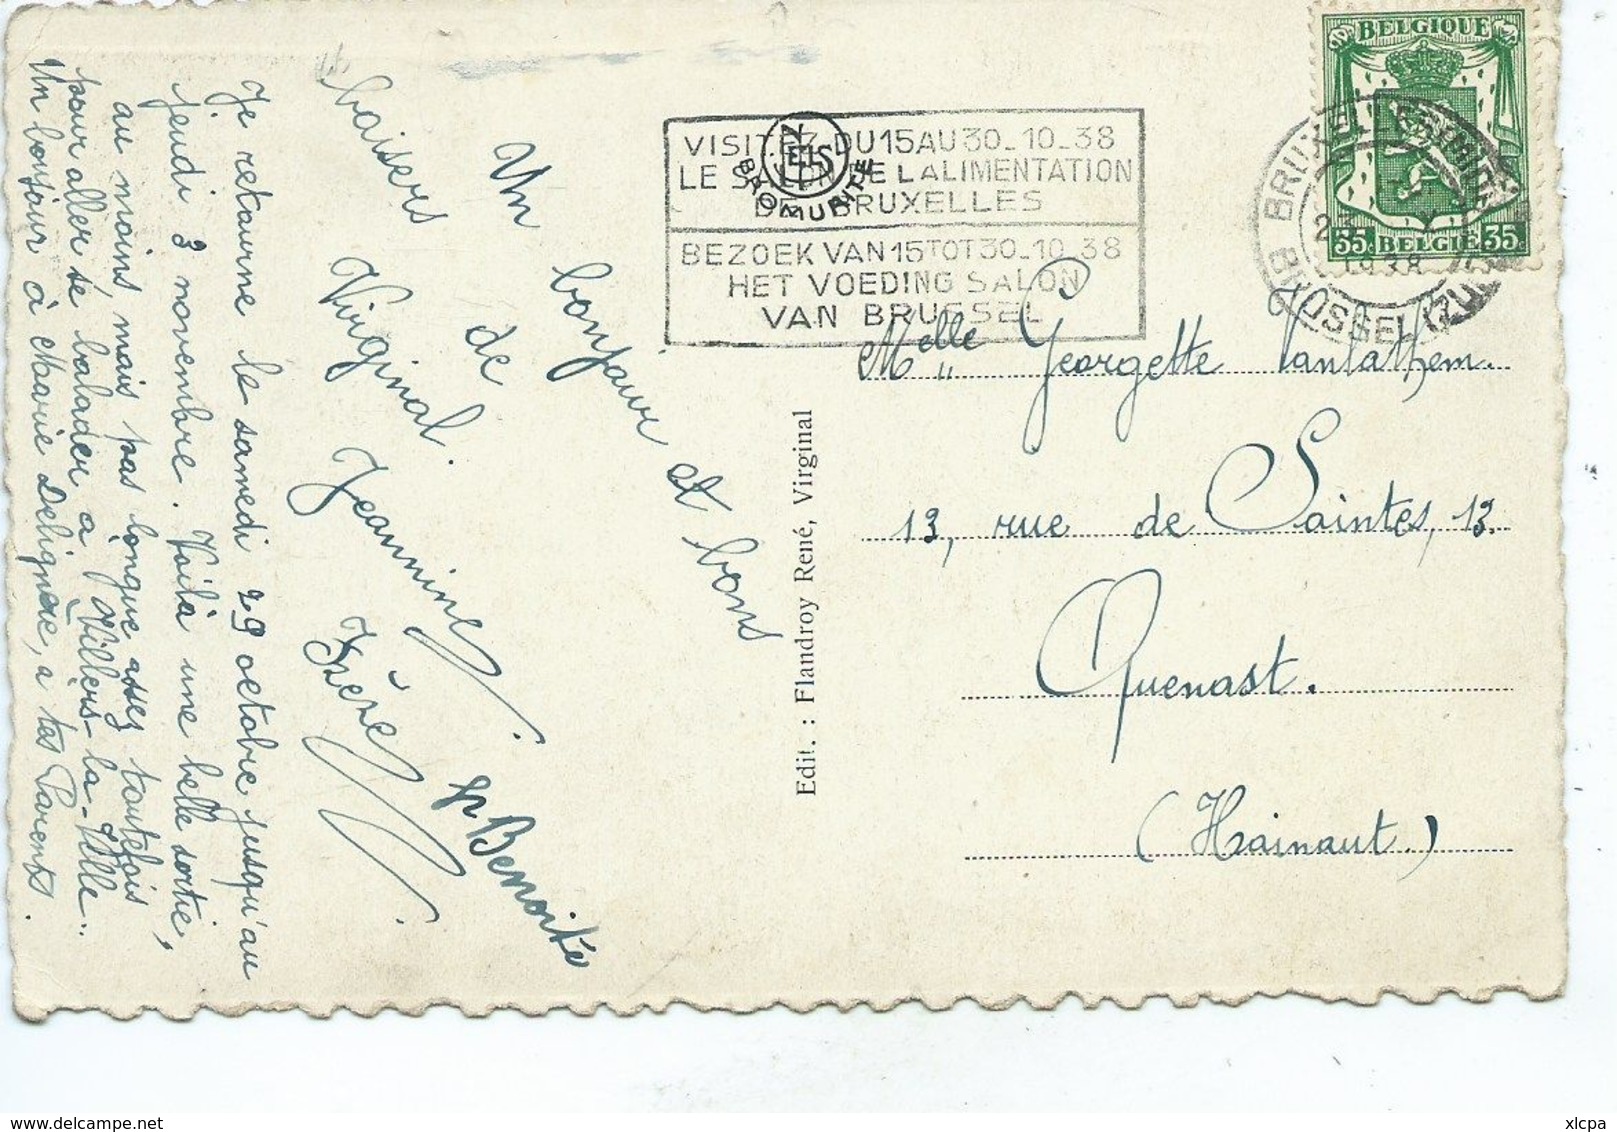 Un bonjour et bons
baisers de
Virginal.
Jeannine
pr Benoite
Je retourne le samedi 29 octobre jusqu'au
jeudi 3 novembre. Voilà une belle sortie,
au moins, mais pas longue assez toutefois
pour aller se balader à Villers-la-Ville.
Un bonjour à Marie Delignère, à tes Parents.
Edit. : Flandroy René, Virginal
VISITEZ DU 15 AU 30_10_38
LE SALON DE L ALIMENTATION
DE BRUXELLES
BEZOEK VAN 15 TOT 30_10_38
HET VOEDING SALON
VAN BRUSSEL
NELS
BROMURITE
BELGIQUE
35c BELGIË 35c
BRUXELLES
1938
BRUSSEL
Melle Georgette Vanlathem.
13, rue de Saintes, 13.
Quenast.
(Hainaut.)
delcampe.net
xlcpa